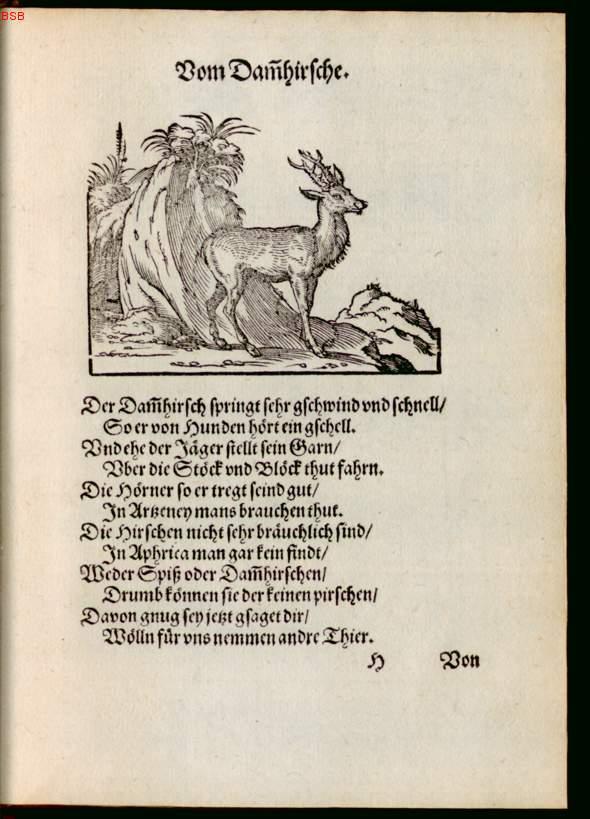 BSB
Vom Dam̃hirsche.
Der Dam̃hirsch springt sehr gschwind vnd schnell/
So er von Hunden hört ein gschell.
Vnd ehe der Jäger stellt sein Garn/
Vber die Stöck vnd Blöck thut fahrn.
Die Hörner so er tregt seind gut/
In Artzeney mans brauchen thut.
Die Hirschen nicht sehr bräuchlich sind/
In Aphrica man gar kein findt/
Weder Spiß oder Dam̃hirschen/
Drumb können sie der keinen pirschen/
Davon gnug sey jetzt gsaget dir/
Wölln für vns nemmen andre Thier.
H Von